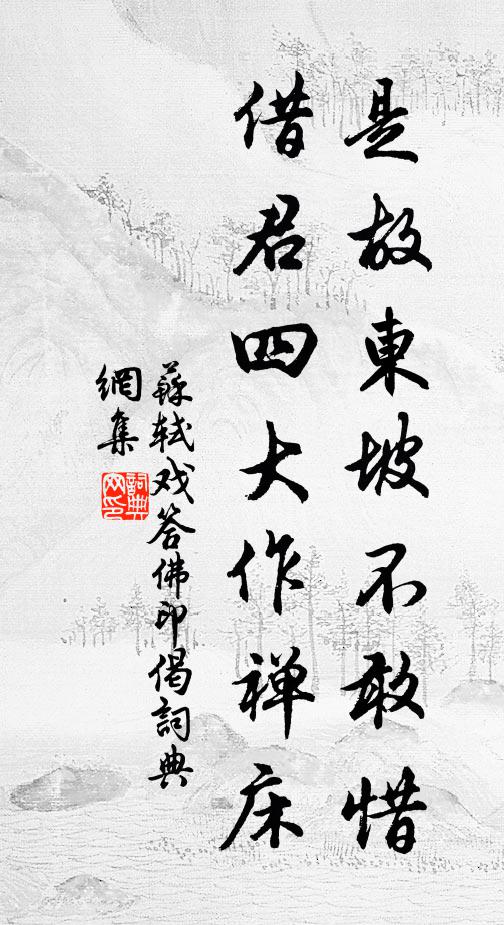 是故東坡不敢惜
借君四大作禅床
蘇轼戏答佛印偈詞典
網集
詞典
网印